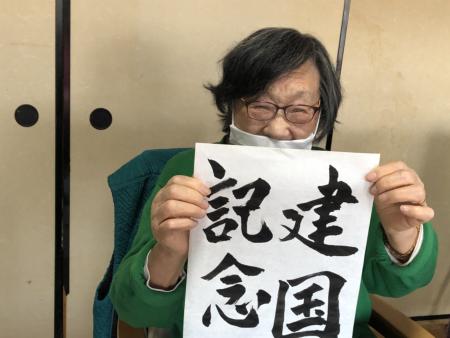 建国
記念